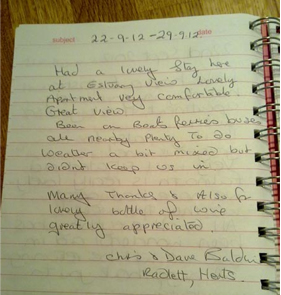 subject 22-9-12 - 29-9.12 date
Had a lovely stay here
at Estuary View Lovely
Apartment very comfortable.
Great view.
Been on Boats ferries buses
all nearby plenty To do
weather a bit mixed but
didnt keep us in
Many Thanks & Also for
lovely bottle of wine
greatly appreciated.
Chris & Dave Baldw
Radlett, Herts.